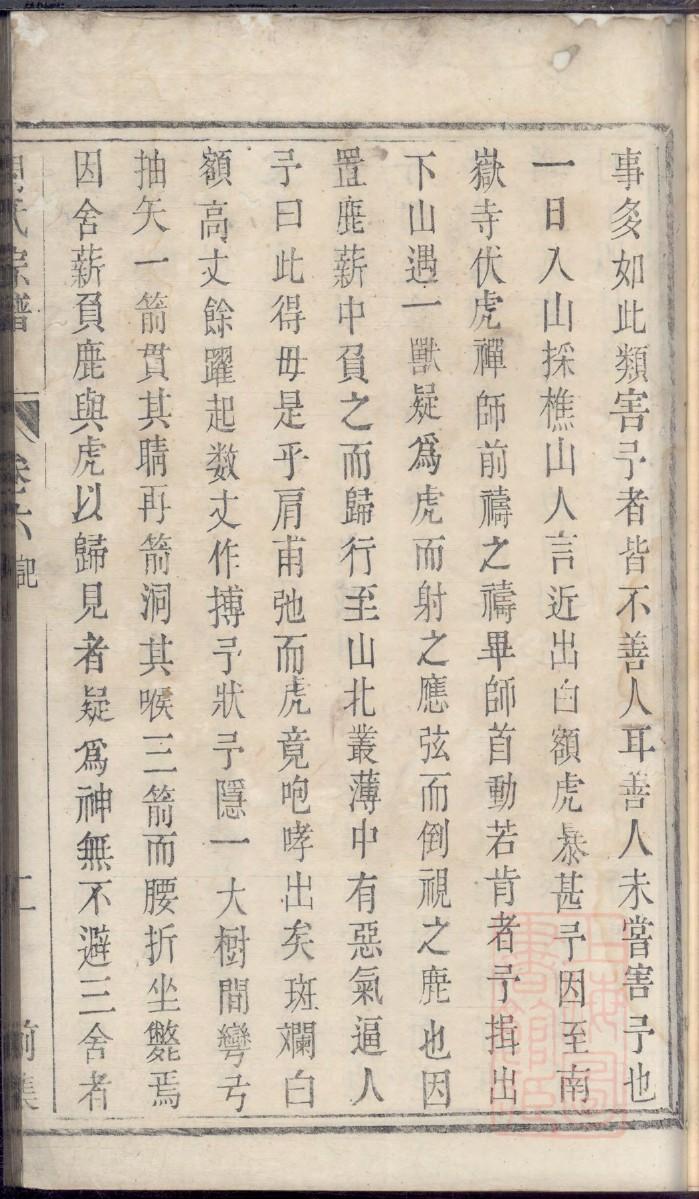 事多如此類害予者皆不善人耳善人未嘗害予也
一日入山採樵山人言近出白額虎暴甚予因至南
嶽寺伏虎禪師前禱之禱畢師首動若肯者予揖出
下山遇一獸疑爲虎而射之應弦而倒視之鹿也因
置鹿薪中負之而歸行至山北叢薄中有惡氣逼人
予曰此得毋是乎肩甫弛而虎竟咆哮出矣斑斕白
額高丈餘躍起数丈作搏予狀予隱一大樹間彎弓
抽矢一箭貫其睛再箭洞其喉三箭而腰折坐斃焉
因舍薪負鹿與虎以歸見者疑爲神無不避三舍者
氏宗譜 卷六 記 二 前集